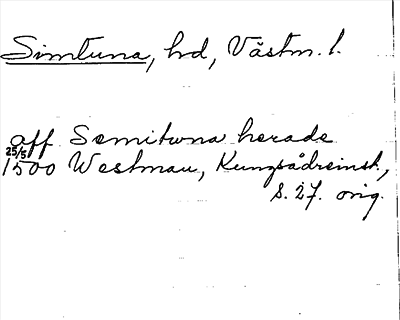 Simtuna, hd, Västm. l.
aff Semituna herade
25/5
1500 Westmau, Kungsådreinsk.,
s. 27. orig.